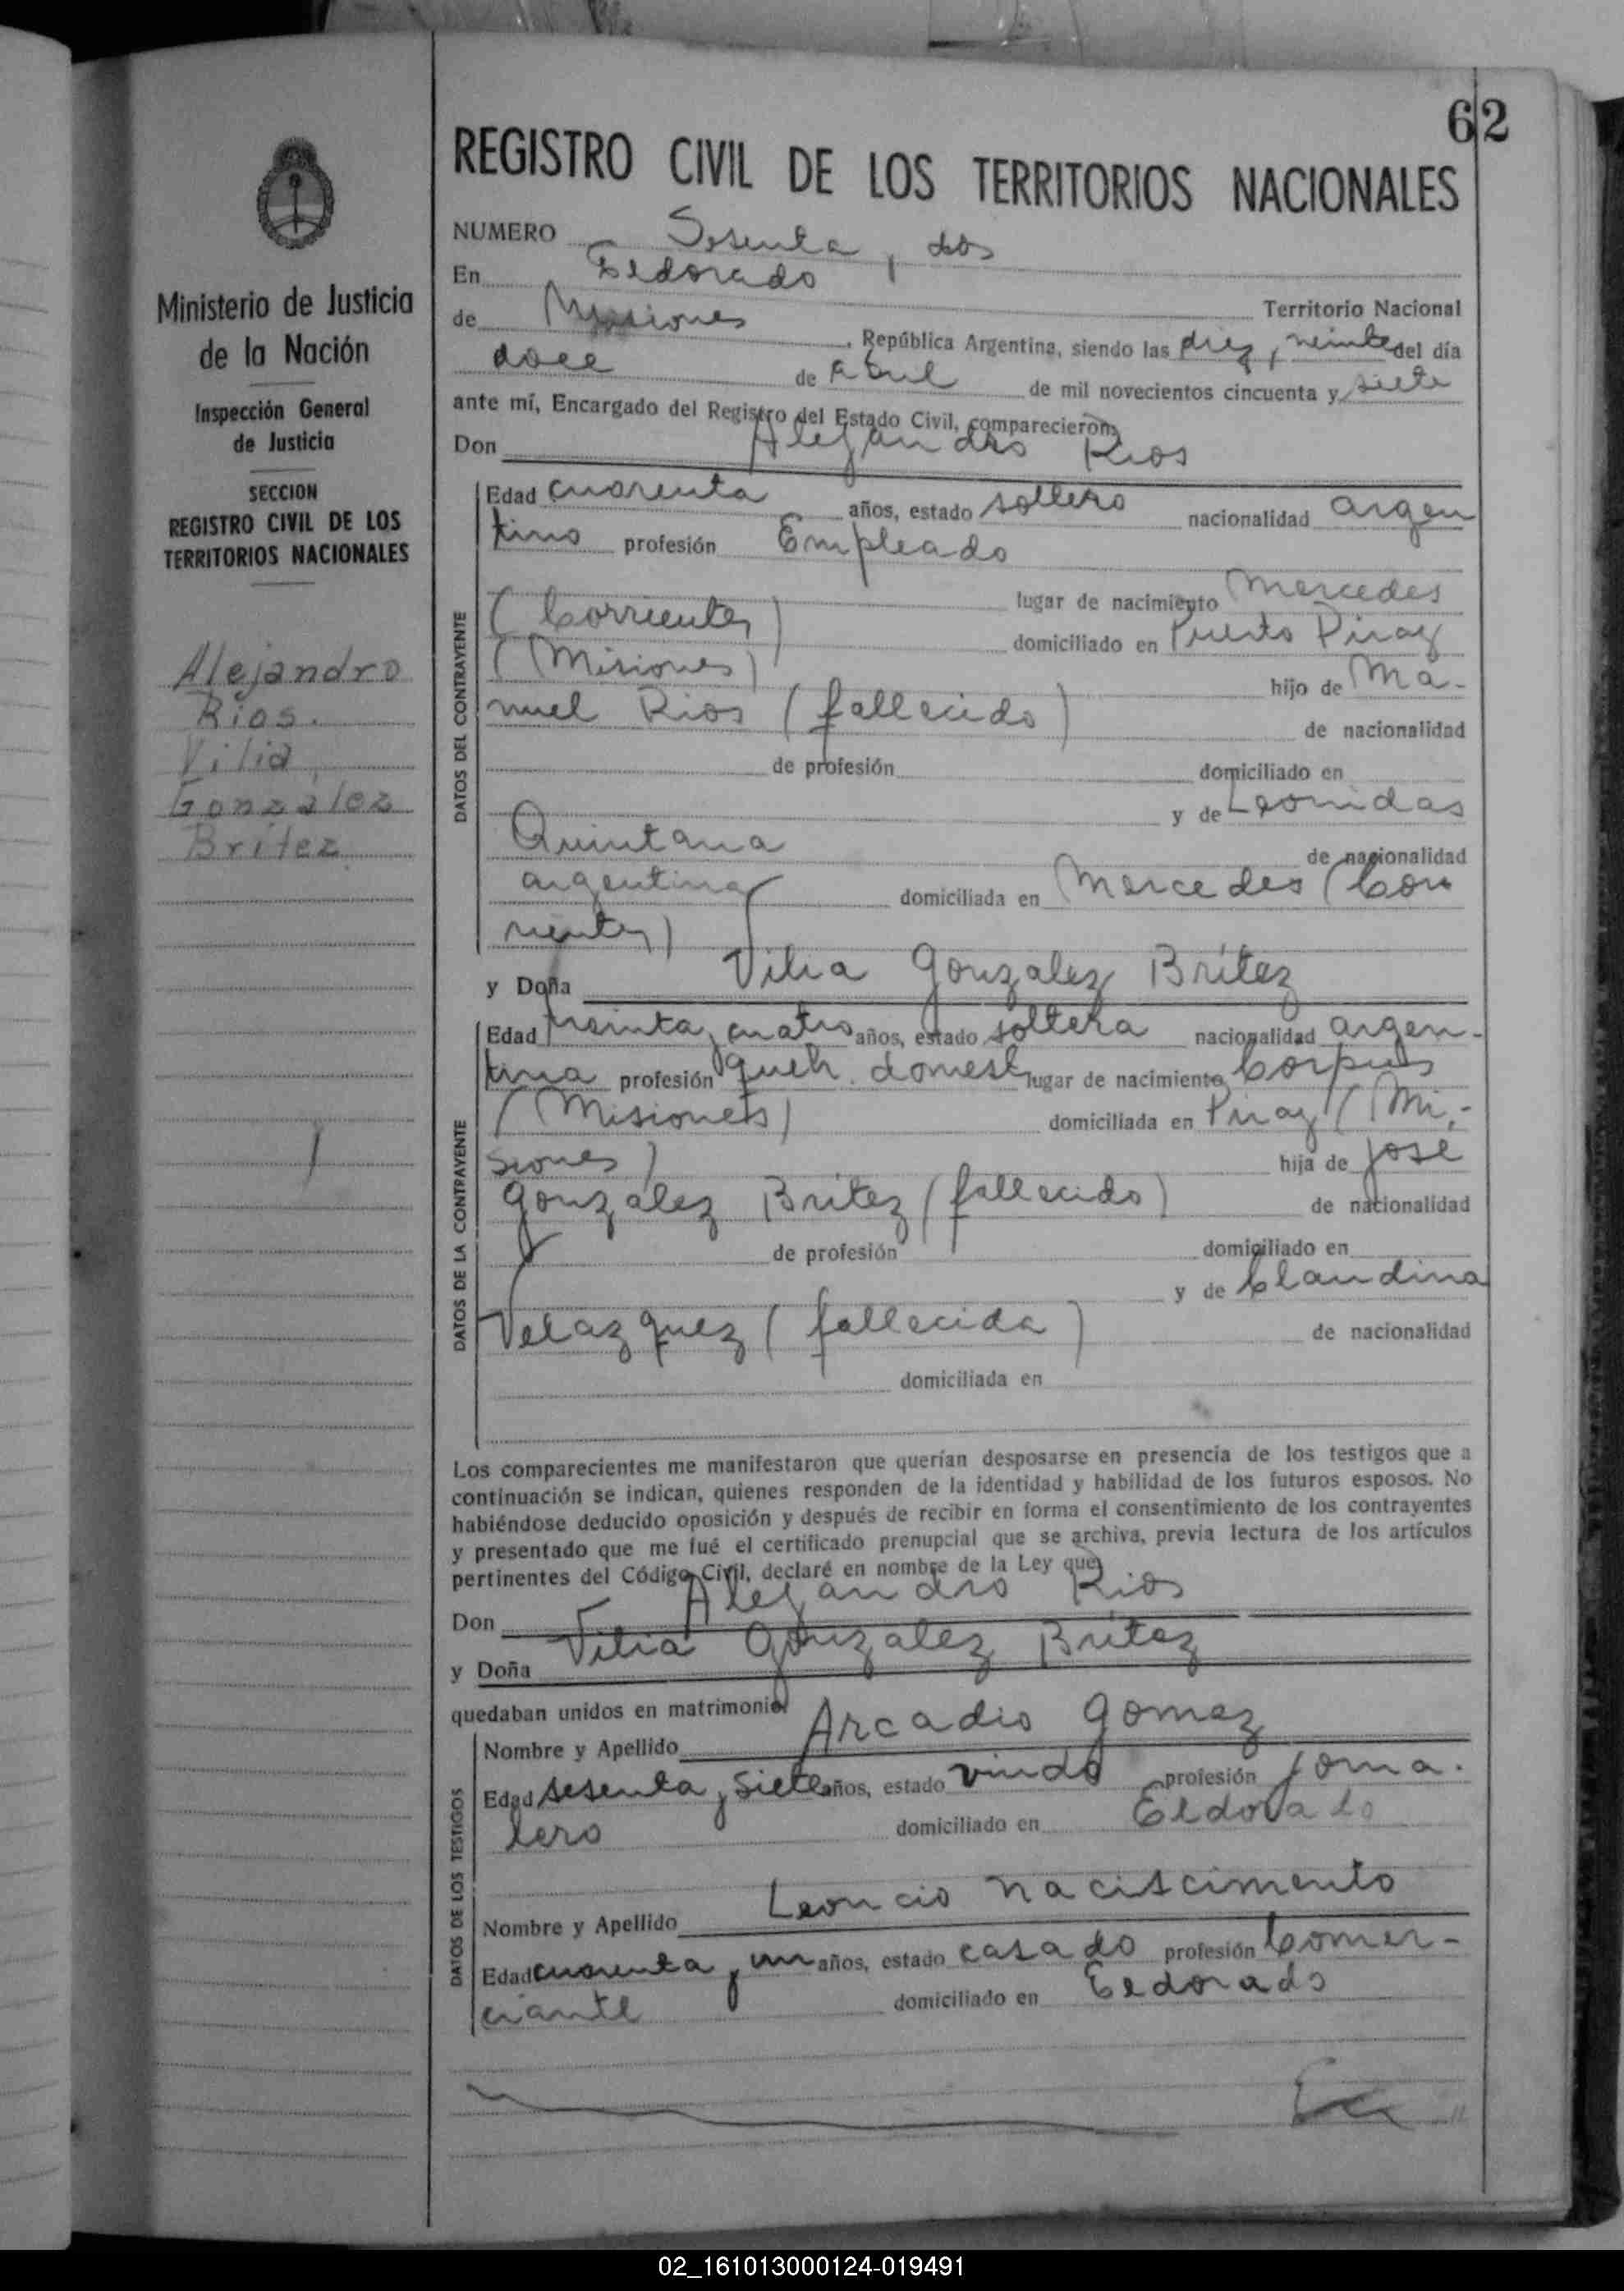 62
REGISTRO CIVIL DE LOS TERRITORIOS NACIONALES
Ministerio de Justicia
de la Nación
Inspección General
de Justicia
SECCION
REGISTRO CIVIL DE LOS
TERRITORIOS NACIONALES
Alejandro
Rios.
Vilia
Gonzalez
Britez
NUMERO Sesenta y dos
En Eldorado Territorio Nacional
de Misiones, República Argentina, siendo las diez y veinte del día
doce de Abril de mil novecientos cincuenta y siete
ante mí, Encargado del Registro del Estado Civil, comparecieron:
Don Alejandro Rios
DATOS DEL CONTRAYENTE
Edad cuarenta años, estado soltero nacionalidad argen
tino profesión Empleado
lugar de nacimiento Mercedes
(Corrientes) domiciliado en Puerto Piray
(Misiones) hijo de Ma-
nuel Rios (fallecido) de nacionalidad
de profesión domiciliado en
y de Leonidas
Quintana de nacionalidad
argentina domiciliada en Mercedes (Cor
rientes)
y Doña Vilia Gonzalez Brítez
DATOS DE LA CONTRAYENTE
Edad treinta y cuatro años, estado soltera nacionalidad argen-
tina profesión queh. domest lugar de nacimiento Corpus
(Misiones) domiciliada en Piray (Mi-
siones) hija de José
Gonzalez Britez (fallecido) de nacionalidad
de profesión domiciliado en
y de Claudina
Velazquez (fallecida) de nacionalidad
domiciliada en
Los comparecientes me manifestaron que querían desposarse en presencia de los testigos que a
continuación se indican, quienes responden de la identidad y habilidad de los futuros esposos. No
habiéndose deducido oposición y después de recibir en forma el consentimiento de los contrayentes
y presentado que me fué el certificado prenupcial que se archiva, previa lectura de los artículos
pertinentes del Código Civil, declaré en nombre de la Ley que
Don Alejandro Rios
y Doña Vilia Gonzalez Britez
quedaban unidos en matrimonio
DATOS DE LOS TESTIGOS
Nombre y Apellido Arcadio Gomez
Edad sesenta y siete años, estado viudo profesión Jorna-
lero domiciliado en Eldorado
Nombre y Apellido Leoncio Naciscimento
Edad cuarenta y un años, estado casado profesión Comer-
ciante domiciliado en Eldorado
02_161013000124-019491